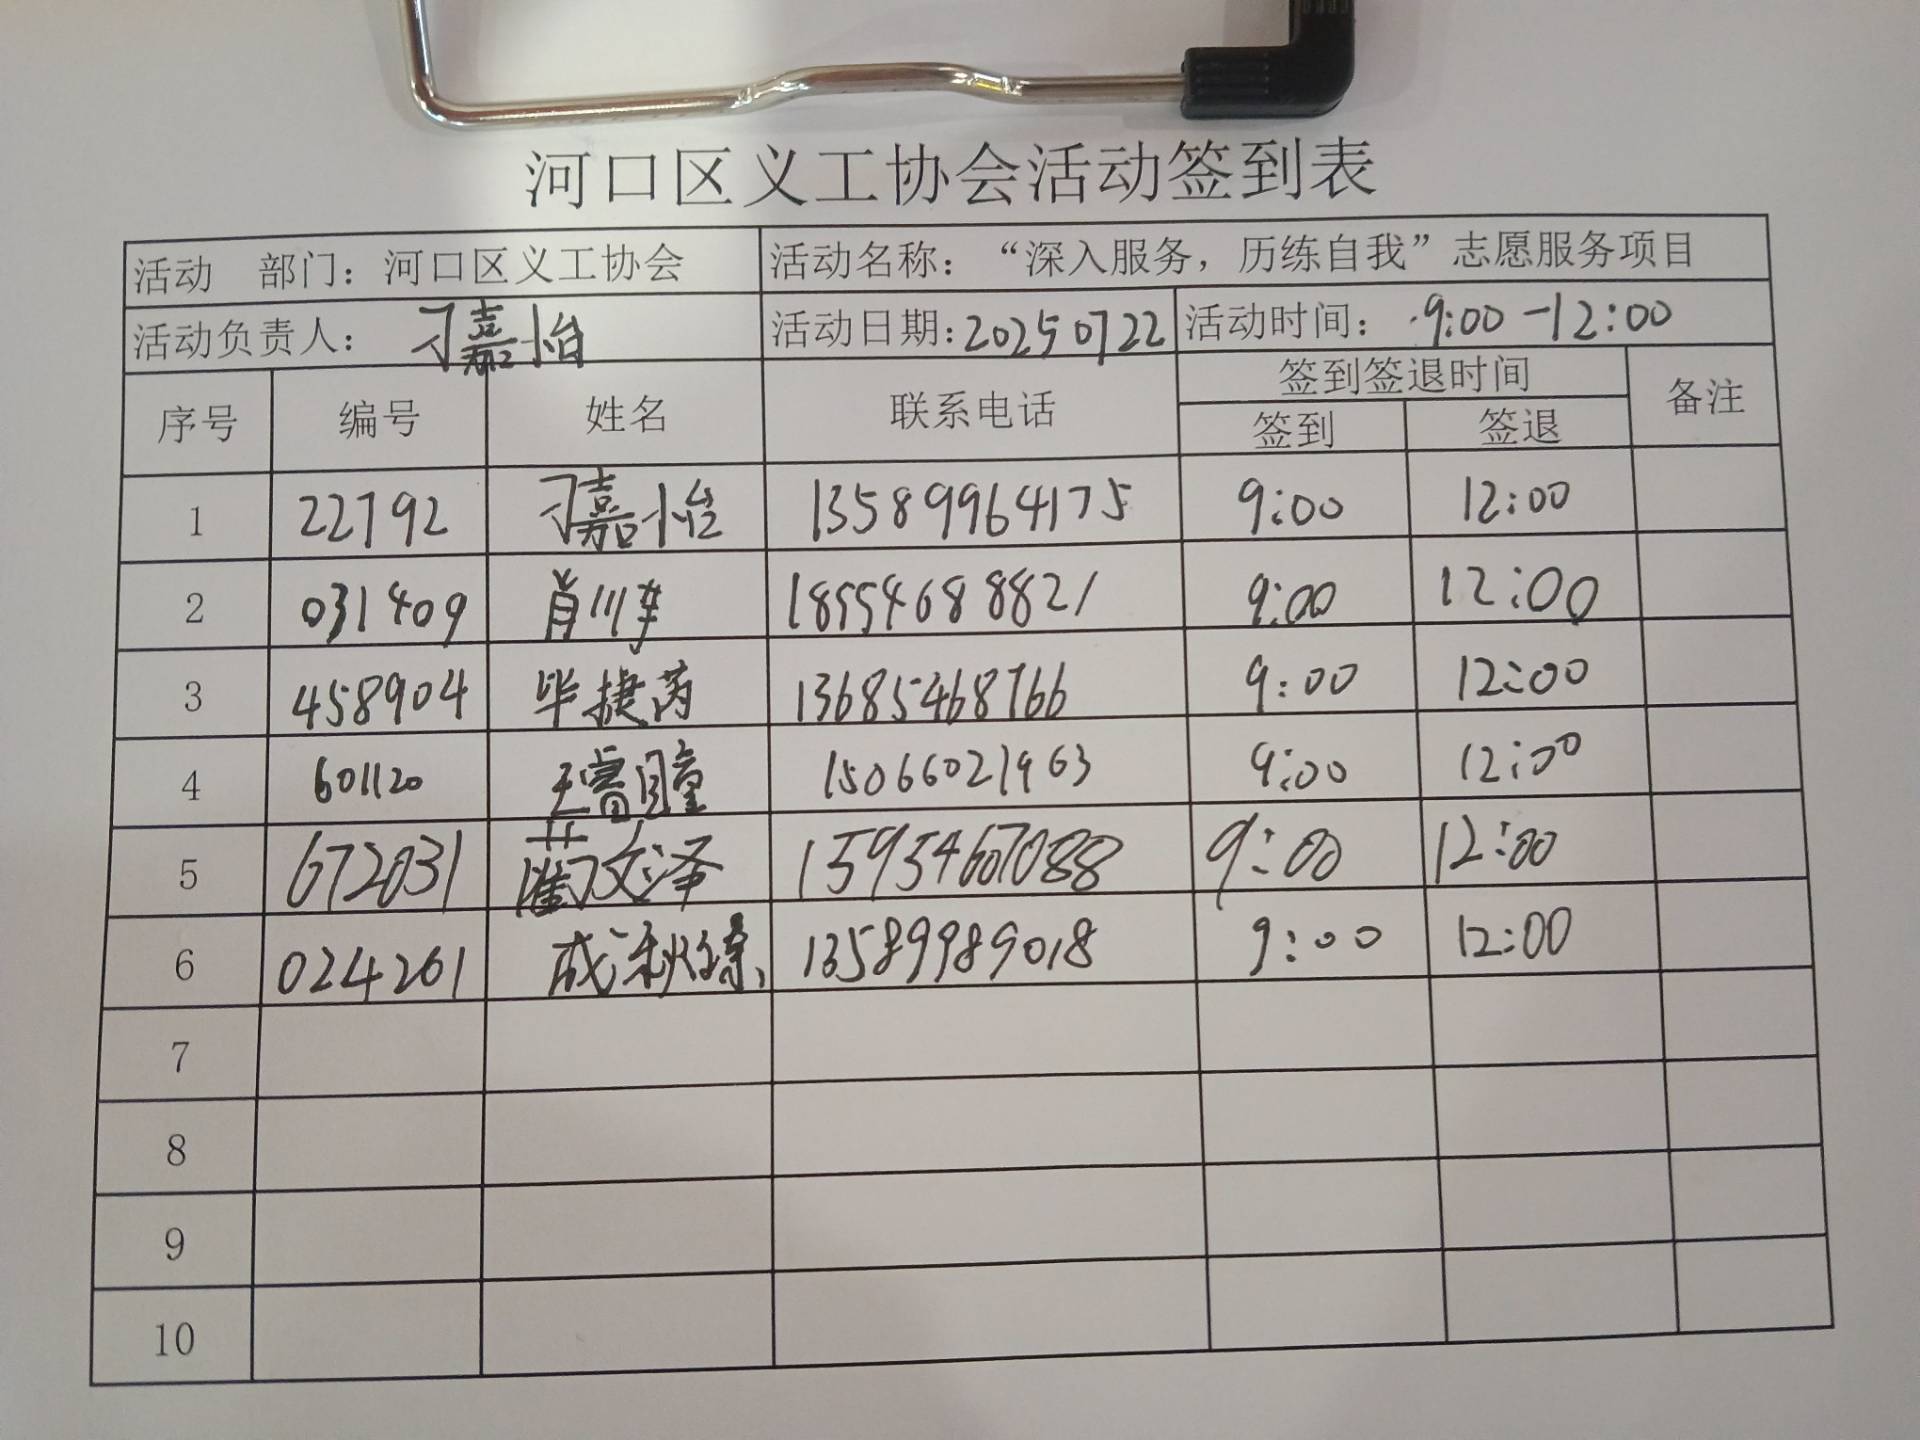 河口区义工协会活动签到表
活动 部门：河口区义工协会 活动名称：“深入服务，历练自我”志愿服务项目
活动负责人：刁嘉怡 活动日期：20250722 活动时间：9:00-12:00
序号 编号 姓名 联系电话 签到签退时间 备注
签到 签退
1 22792 刁嘉怡 13589964175 9:00 12:00
2 031409 肖 18554688821 9:00 12:00
3 458904 毕捷芮 13685468766 9:00 12:00
4 601120 王睿瞳 15066021963 9:00 12:00
5 672031 文泽 15954607088 9:00 12:00
6 024261 成秋 13589989018 9:00 12:00
7
8
9
10